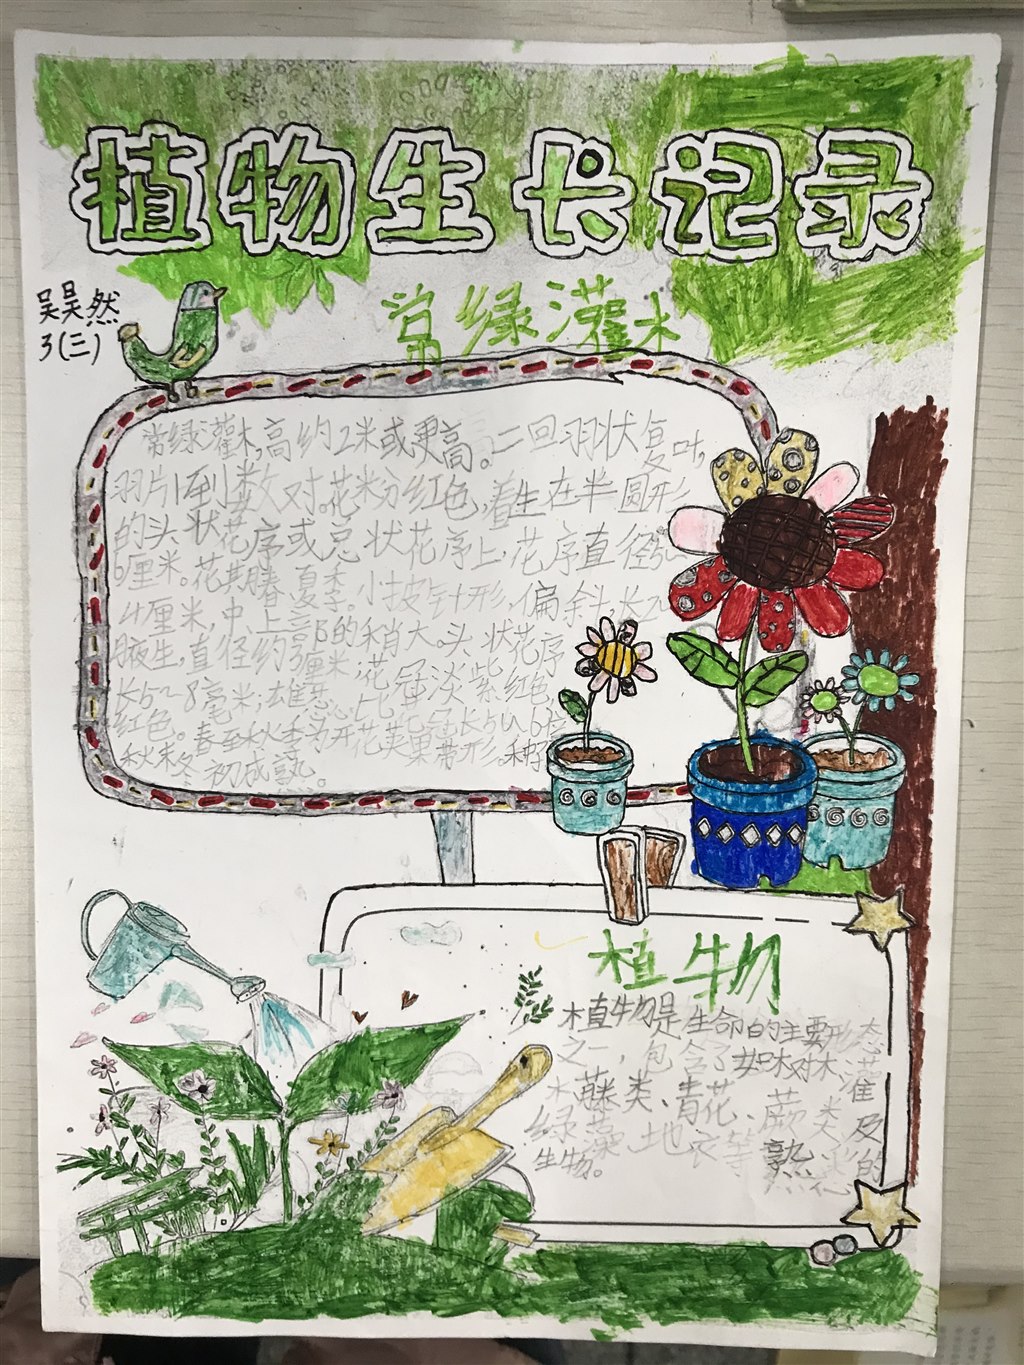 植物生长记录
吴昊然
3(三)
常绿灌木
常绿灌木,高约2米或更高。二回羽状复叶,
羽片1到数对。花粉红色,着生在半圆形
的头状花序或总状花序上,花序直径
6厘米。花期春夏季。小披针形,偏斜,长
4厘米,中上部的稍大。头状花序
腋生,直径约3厘米,花冠淡紫红色
长5~8毫米;雄蕊比花冠长5
红色。春至秋季为开花荚果带形。种
秋末冬初成熟。
植物
植物是生命的主要形态
之一,包含了如对木灌
木藤类、青花、蕨类及
绿藻地衣等熟悉的
生物。